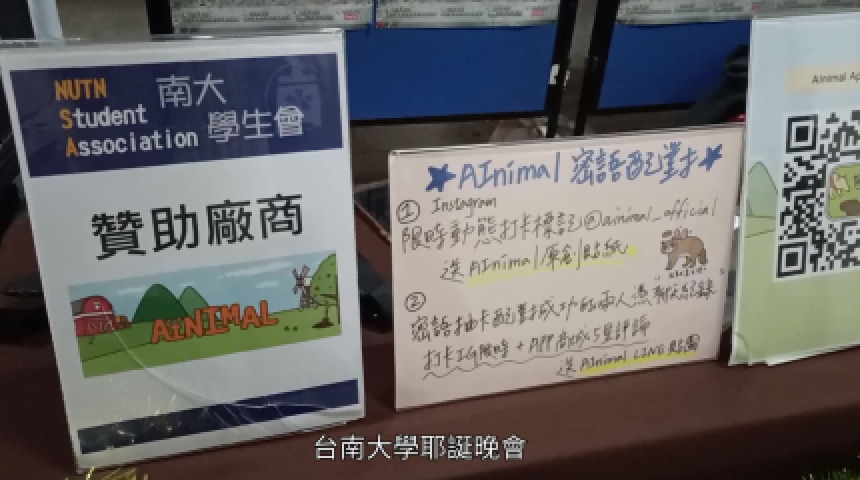 NUTN
Student
Association
南大
學生會
贊助廠商
AiNIMAL
★AInimal 密語配對★
① Instagram
限時動態打卡標記@ainimal_official
送 AInimal 原創貼紙
②
密語抽卡配對成功的兩人憑聊天記錄
打卡IG限時+APP商城5星評論
送 AInimal LINE 貼圖
AInimal Ap
台南大學耶誕晚會